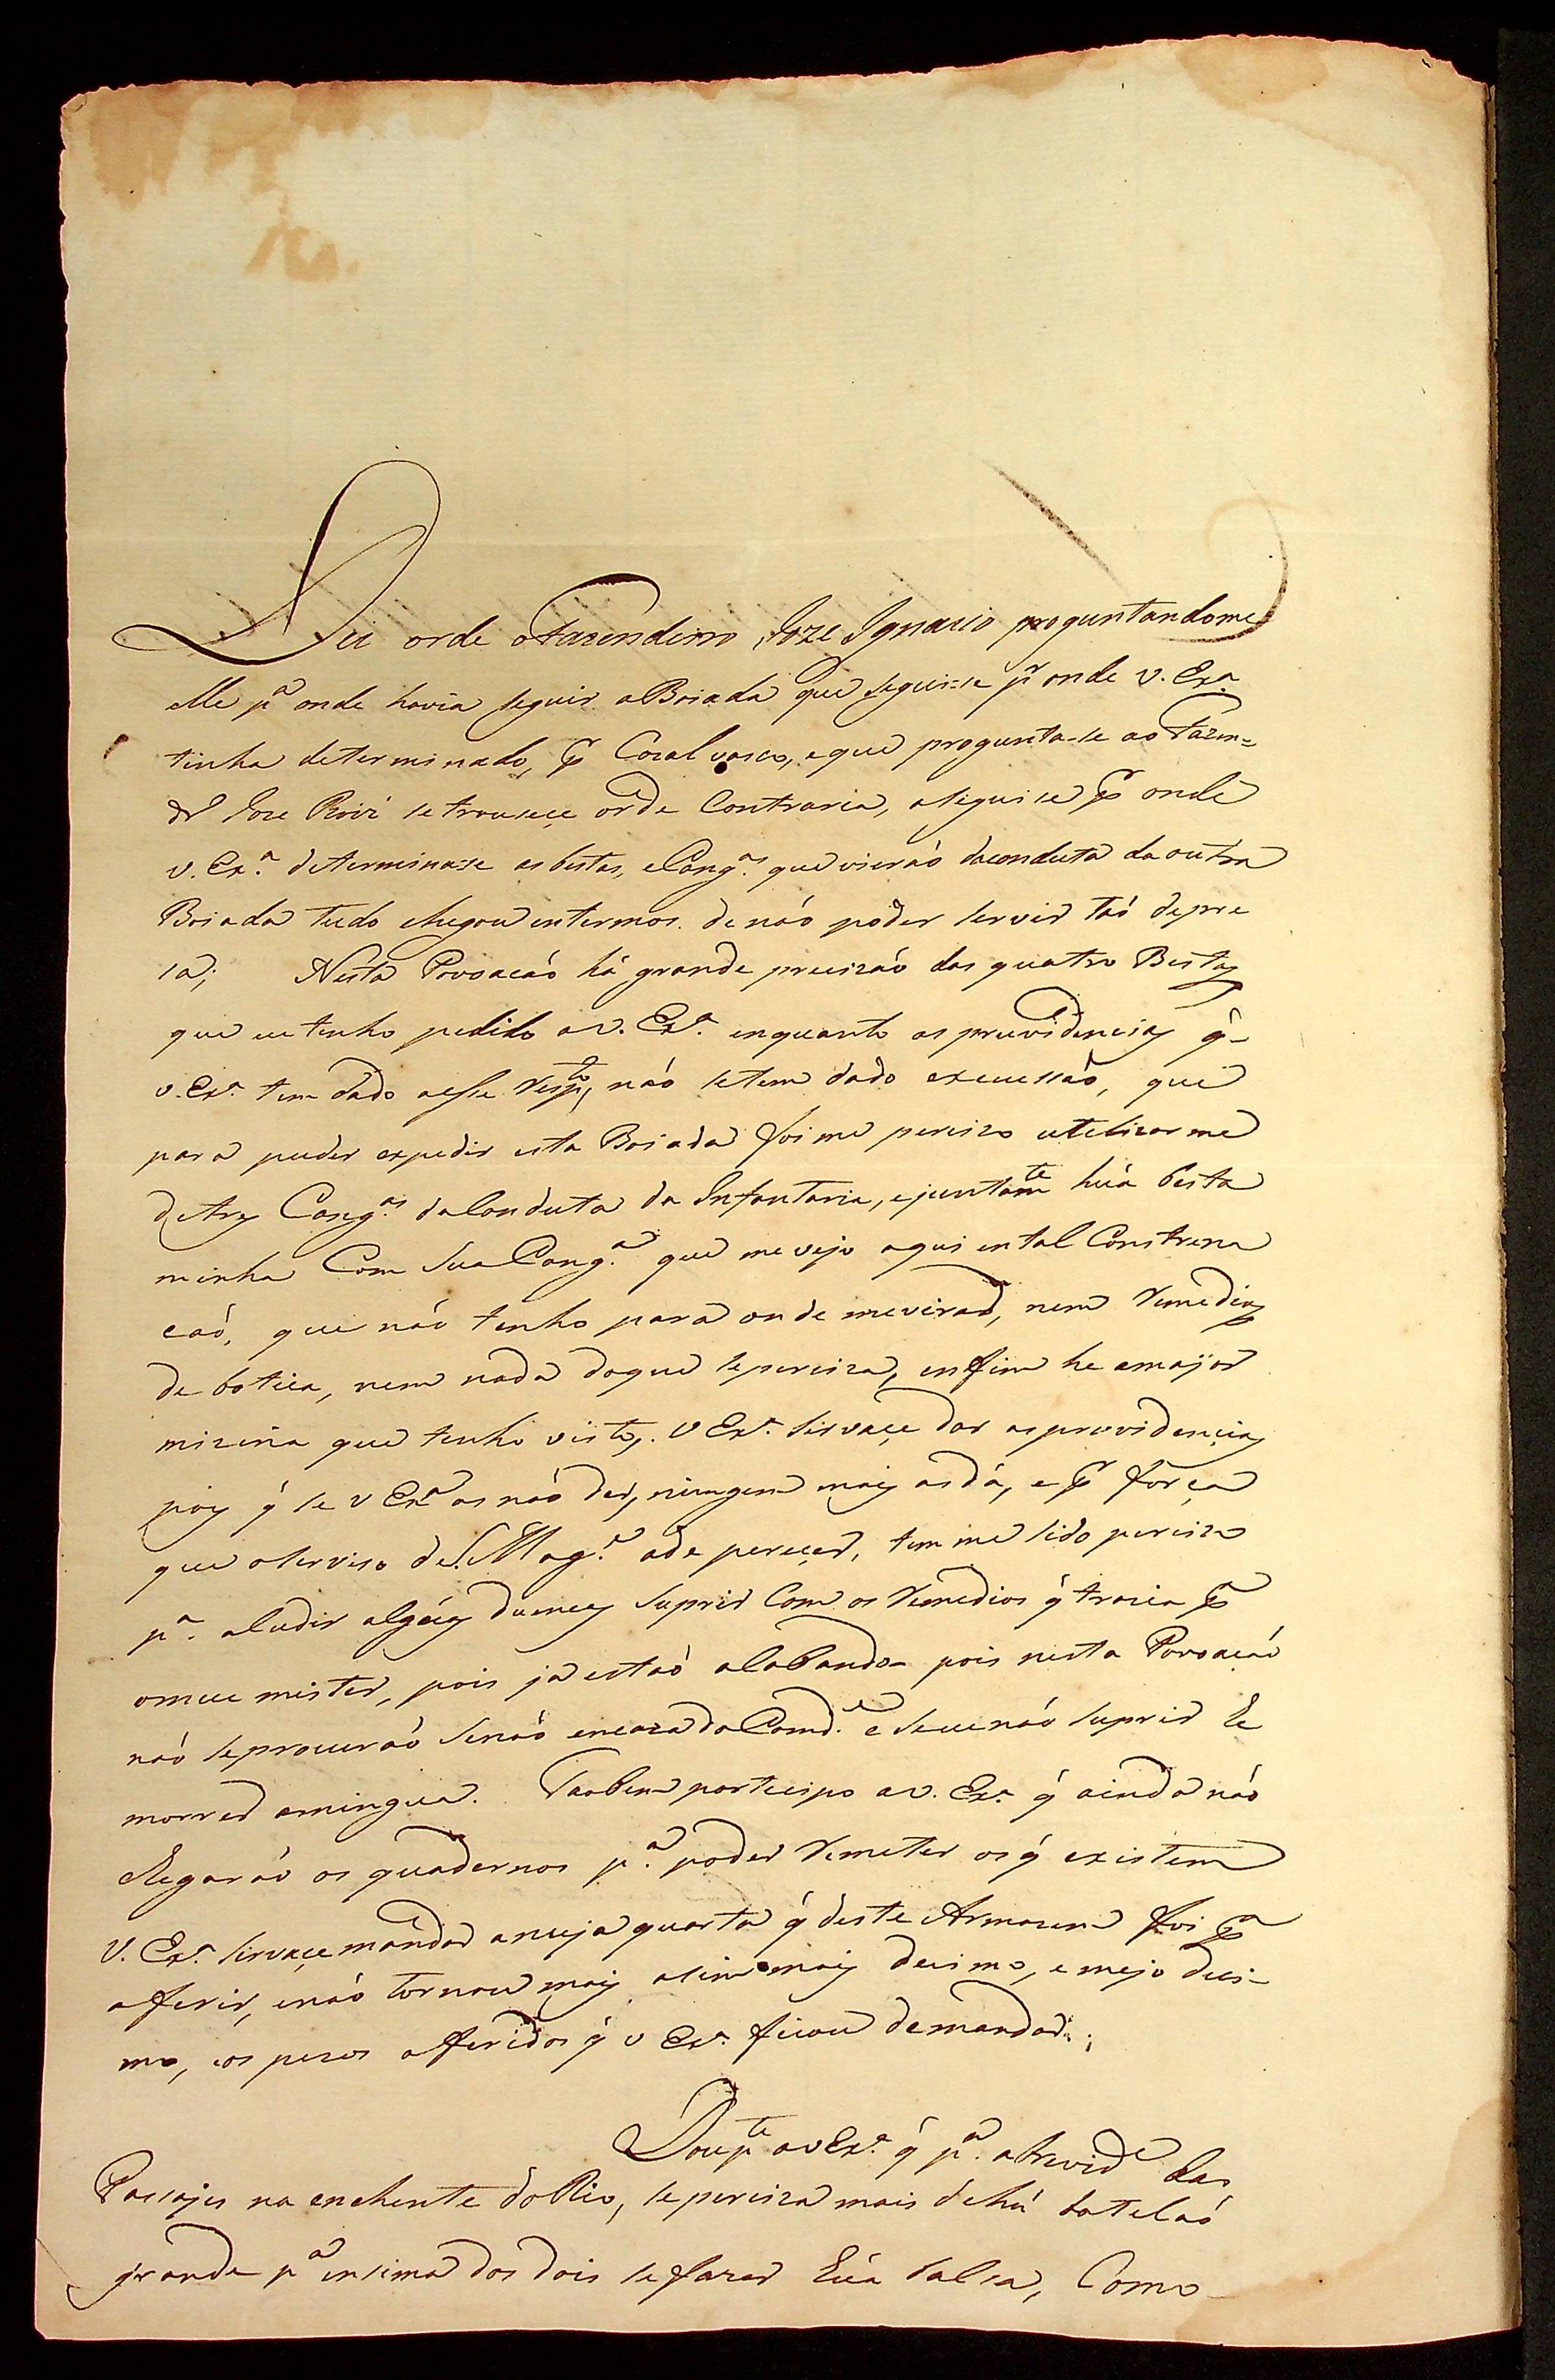 Dei orde o Fazendero Joze Ignacio proguntandome
elle p.ª onde havia seguir a Boiada que seguise p.ª onde V. Ex.ª
tinha determinado, p.ª Cazalvasco, e que progunta-se ao Fazen=
dr.º Joze Roiz se trousese orde Contraria, a seguise p.ª onde
V. Ex.ª determinase as bestas, e Cang.as que vieraó daconduta da outra
Boiada tudo chegou entermos de náo poder servir taó depre
sa; Nesta Povoacáo há grande precizaó das quatro Bestas
que eu tenho pedido a V. Ex.ª enquanto as pruvidencias q̃
V. Ex.ª tem dado a esse resp.to, náo setem dado execussaõ, que
para puder expedir esta Boiada foi me perciso utelizarme
de tres Cang.as da Conduta da Infantaria, e juntam.te húa besta
minha Com sua Cang.ª que me vejo aqui ental Constrena
caó, que náo tenho para onde mevirar, nem remedios
de botica, nem nada doque se perciza, enfim he a maijor
mizeria que tenho visto. V Ex.ª sirvaçe dar as pruvidencias
pois q̃ se V Ex.ª as naó der, ningem mais as dá, e p.r força
que o serviso de S. Mag.e a de pereçer, tem me sido perciso
p.ª aludir alguns duentes suprir Com os remedios q̃ trazia p.ª
omeu mister, pois ja estaó acabando= pois nesta Povoacaó
náo se procuraó senaó encaza do Comd.e e se eu náo suprir he
morrer amingua. Taobem partecipo a V. Ex.ª q̃ ainda náo
chegaráo os quadernos p.ª poder remeter os q̃ existem
V. Ex.ª sirvaçe mandar a meja quarta q̃ deste Armazem foi p.ª
aferir, enáo tornou mais asim mais decimo, e mejo deci-
mo, e os pezos afferidos q̃ V Ex.ª ficou demandar.
Dou p.te a V Ex.ª q̃ p.ª a brevid.e das
Passajes na enchente do Rio, se perciza mais de hú batelaó
grande p.ª ensima dos dois se fazer húa balsa, Como